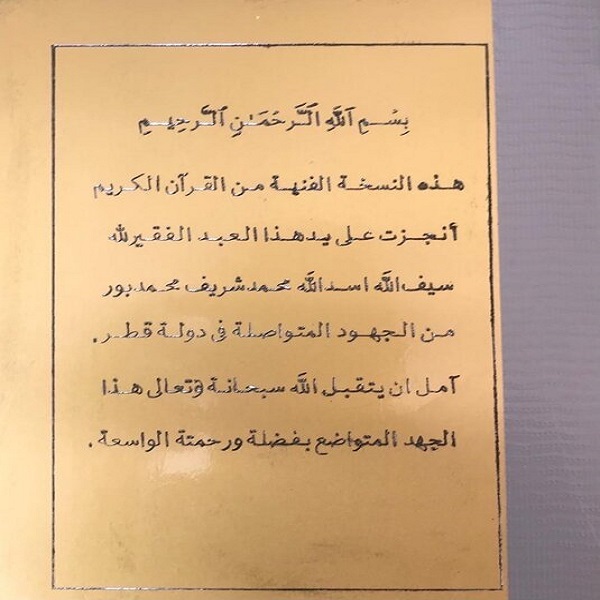 بِسْمِ ٱللَّهِ ٱلرَّحْمَٰنِ ٱلرَّحِيمِ
هذه النسخة الفنهة من القرآن الكريم
أنجزت على يد هذا العبد الفقير لله
سيف الله اسد الله محمد شريف محمد بور
من الجهود المتواصلة في دولة قطر.
آمل ان يتقبل الله سبحانة وتعالى هذا
الجهد المتواضع بفضلة ورحمتة الواسعة.